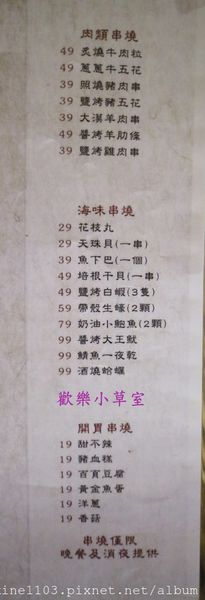 肉類串燒
49 炙燒牛肉粒
49 蔥蔥牛五花
39 照燒豬肉串
39 鹽烤豬五花
39 大漠羊肉串
49 醬烤羊肋條
39 鹽烤雞肉串
海味串燒
29 花枝丸
29 天珠貝(一串)
39 魚下巴(一個)
49 培根干貝(一串)
49 鹽烤白蝦(3隻)
59 帶殼生蠔(2顆)
79 奶油小鮑魚(2顆)
99 醬烤大王魷
99 鯖魚一夜乾
99 酒燒蛤蠣
歡樂小草室
開胃串燒
19 甜不辣
19 豬血糕
19 百頁豆腐
19 黃金魚蛋
19 洋蔥
19 香菇
串燒僅限
晚餐及消夜提供
kinel1103.pixnet.net/album